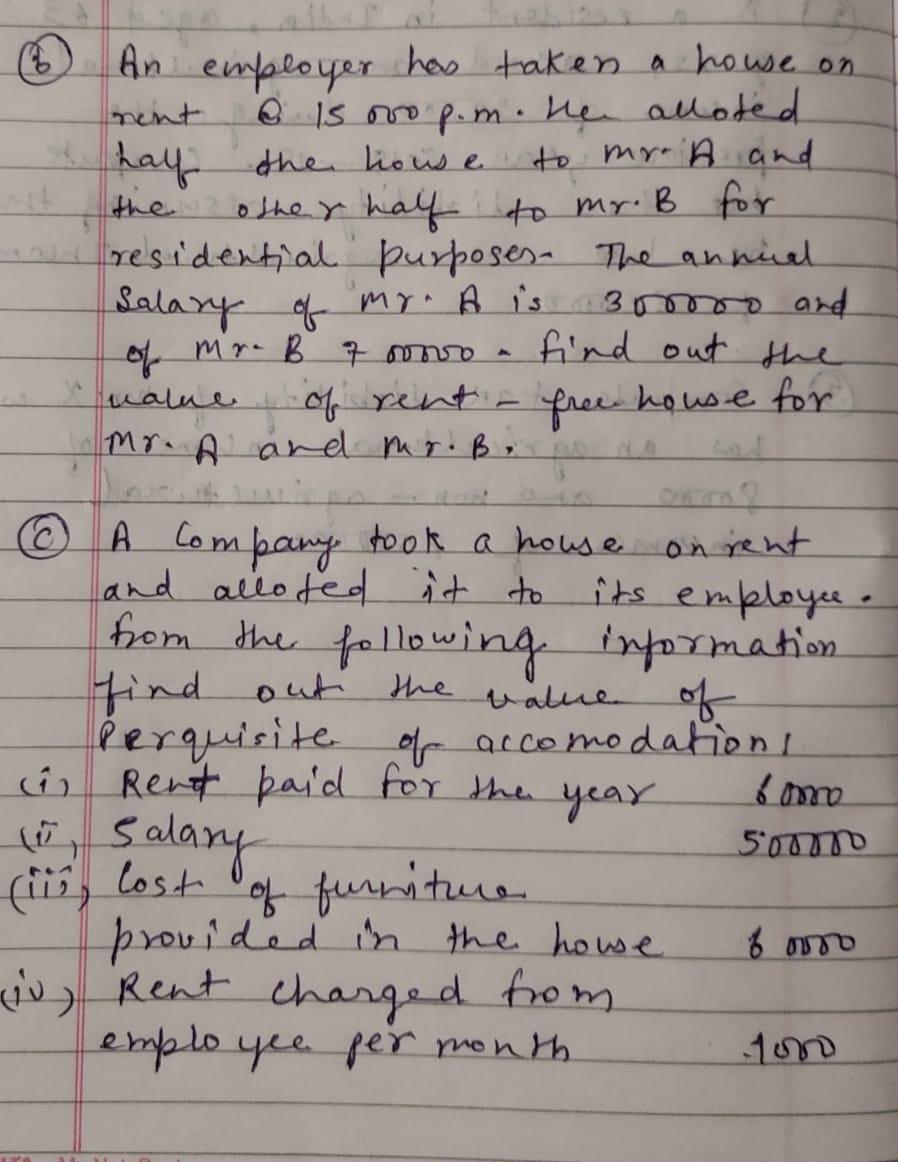 (b) An employer has taken a house on
rent @ 15000 p.m. He alloted
half the house to Mr. A and
the other half to Mr. B for
residential purposes. The annual
Salary of Mr. A is 300000 and
of Mr. B 700000. find out the
value of rent-free house for
Mr. A and Mr. B.
(c) A Company took a house on rent
and alloted it to its employee.
from the following information
find out the value of
Perquisite of accomodation!
(i) Rent paid for the year 60000
(ii) Salary 500000
(iii) Cost of furniture
provided in the house
(iv) Rent charged from
employee per month 1000